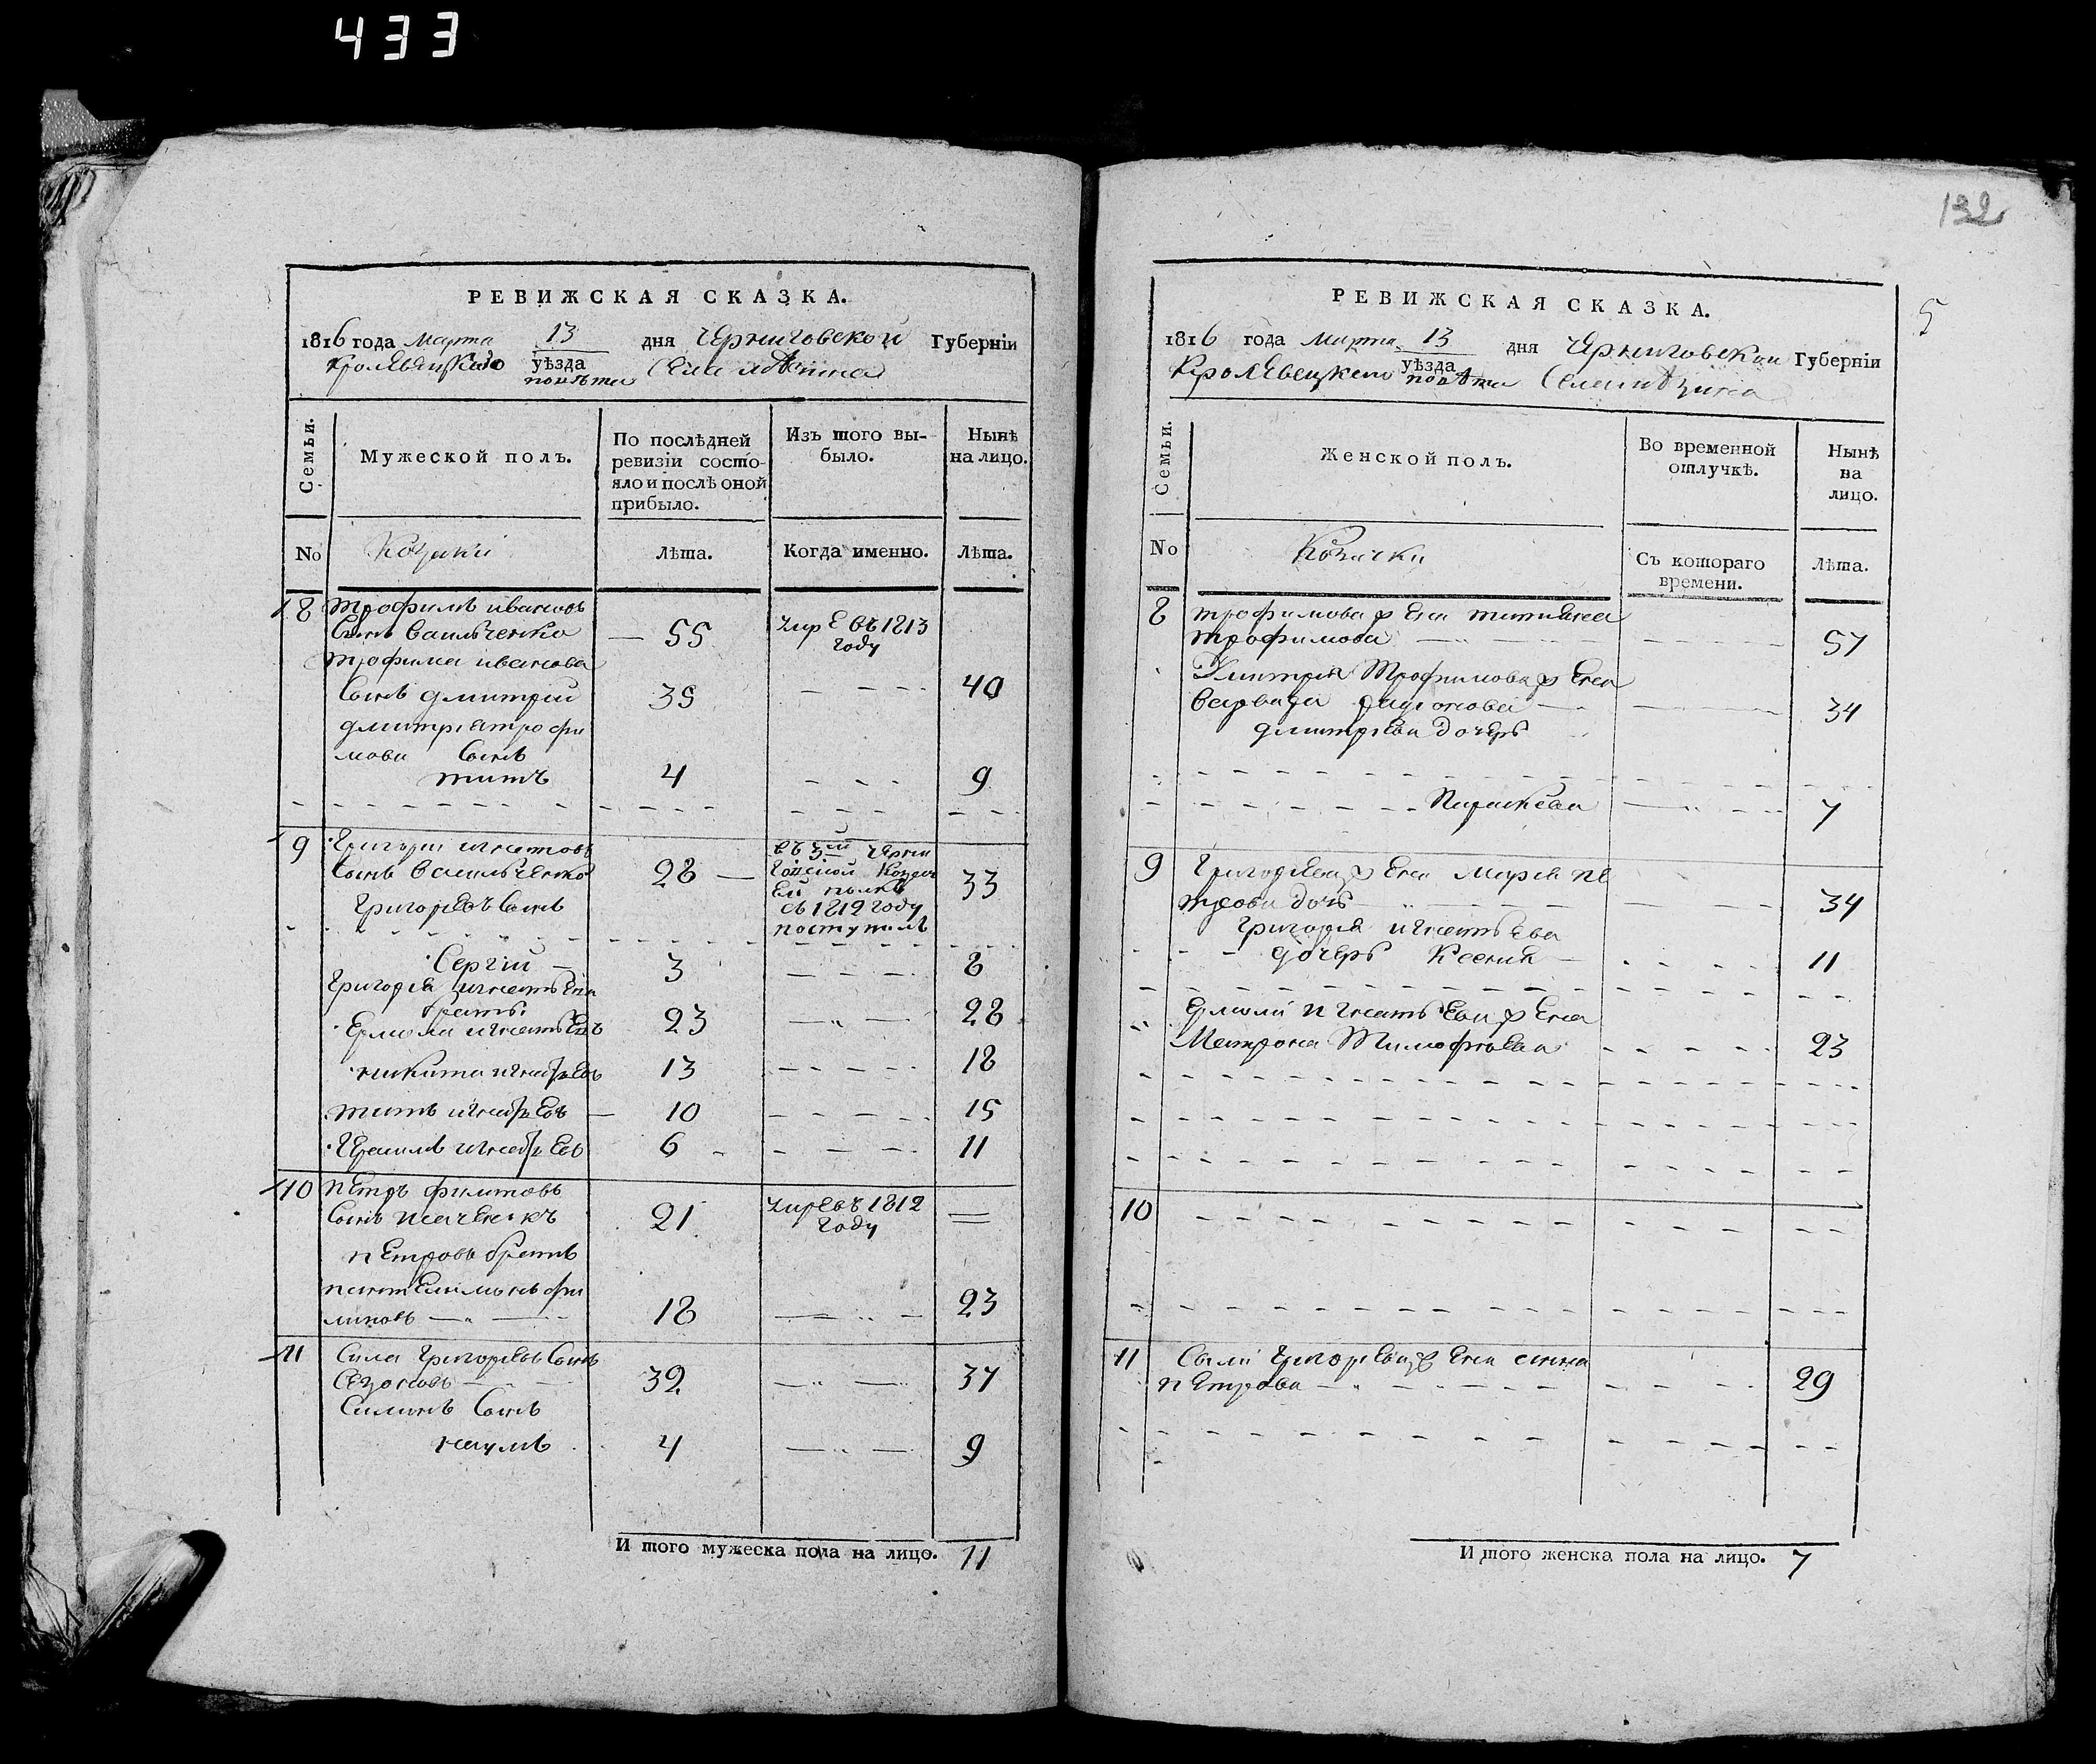 433
РЕВИЖСКАЯ СКАЗКА.
1816 года марта 13 дня Черниговской Губерніи
Кролевецкаго уѣзда
повѣта Села
Семьи.
Мужеской полъ.
По послѣдней
ревизіи состо-
яло и послѣ оной
прибыло.
Изъ того вы-
было.
Нынѣ
на лицо.
No Козаки лѣта. Когда именно. Лѣта.
8 трофимъ ивановъ
сынъ васильченко — 55 умре въ 1813
году
трофима иванова
сынъ дмитрий 35 — — — 40
дмитрия трофи
мова сынъ
титъ 4 — — — 9
9 Григорий игнатовъ
сынъ васильченко 28 — въ 3й Черни
говской козач
ей полкъ
въ 1812 году
поступилъ 33
Григорьевъ сынъ
Сергий — 3 — — — 8
Григория игнатьева
братъ
Ермола игнатьевъ 23 — — 28
никита игнатьевъ 13 — — — 18
титъ игнатьевъ — 10 — — — 15
игнатьевъ 6 — — — 11
10 петръ филиповъ
сынъ 21 умре въ 1812
году =
петровъ братъ
пантелимонъ фи
липовъ — 18 — — 23
11 Сила григорьевъ сынъ
Сазоновъ — 32 — — 37
Силинъ сынъ
наумъ 4 — — 9
И того мужеска пола на лицо. 11
132
5
РЕВИЖСКАЯ СКАЗКА.
1816 года марта 13 дня Черниговской Губерніи
Кролевецкаго уѣзда
повѣта Села
Семьи.
Женской полъ.
Во временной
отлучкѣ.
Нынѣ
на
лицо.
No Козачки Съ котораго
времени. Лѣта.
8 трофимова жена татиана
трофимова — — 57
Дмитрия Трофимова жена
варвара — — 34
дмитриева дочерь
Параскева — — 7
9 Григориева жена Мария пе
трова дочь — — 34
григория игнатьева
дочерь Ксения — — 11
Ермоли игнатьева жена
Матрона Тимофѣева — — 23
10 — — —
11 Силы григорьева жена анна
петрова — — 29
И того женска пола на лицо. 7